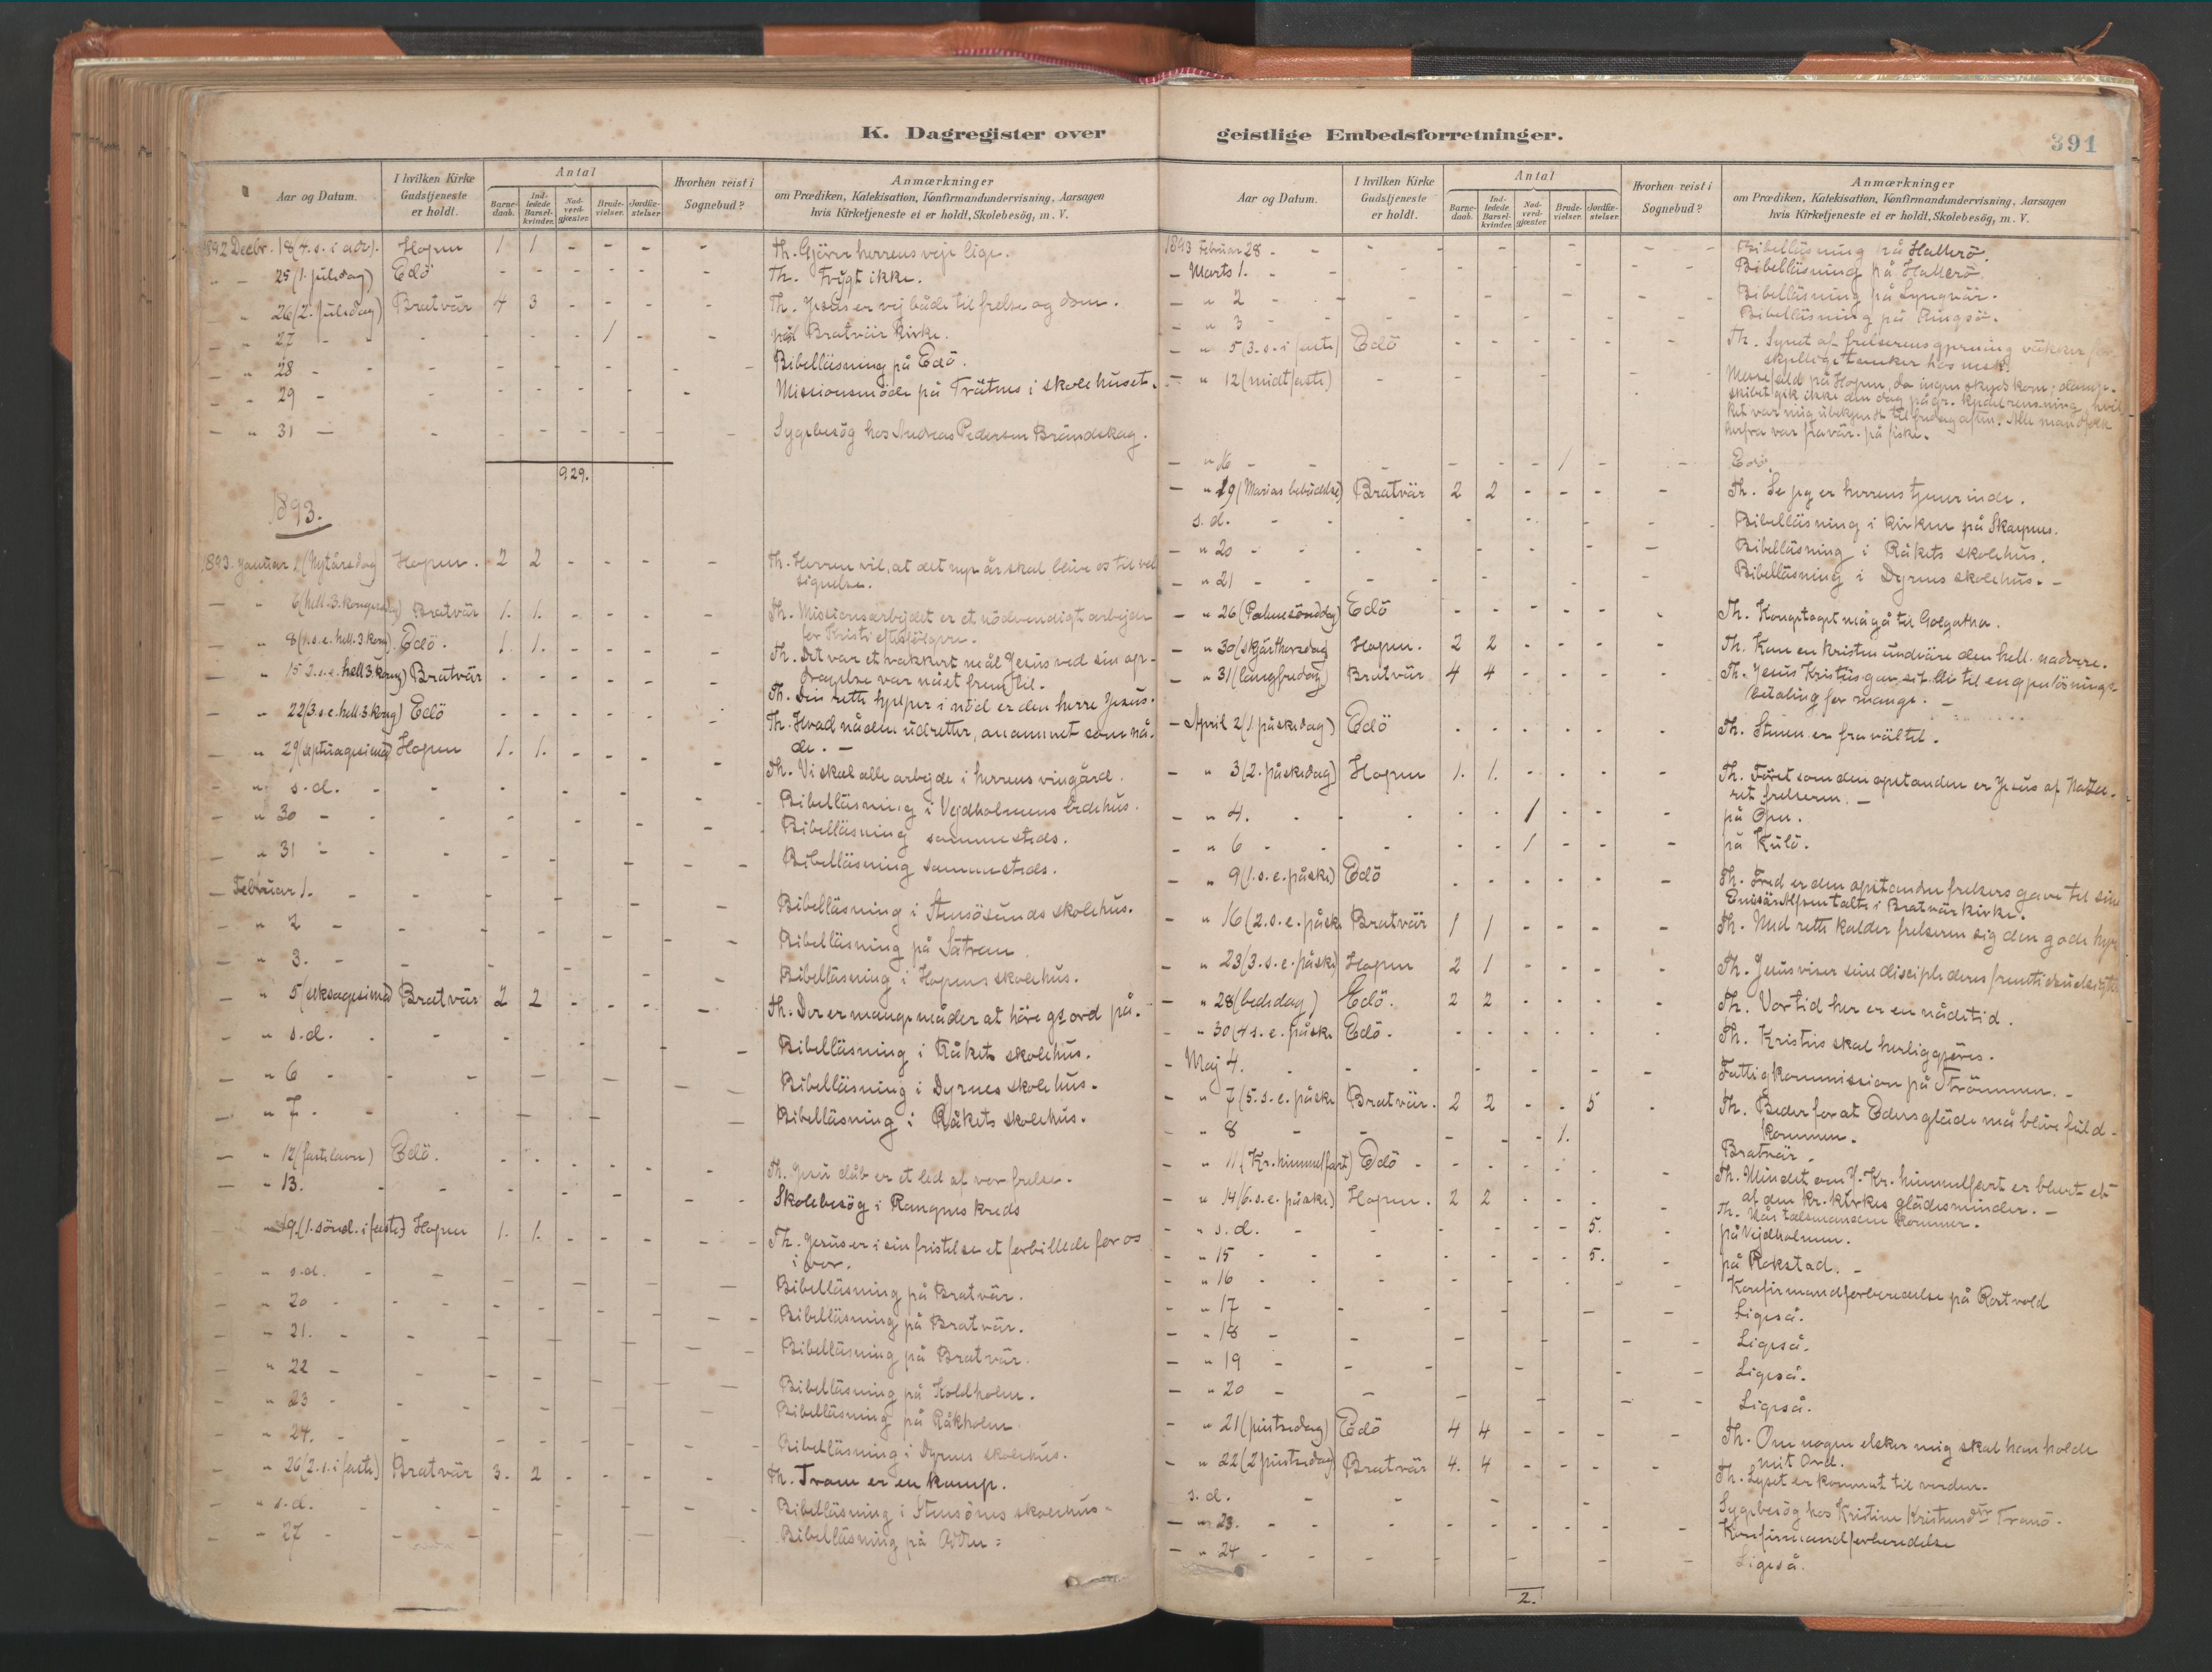 K. Dagregister over
Aar og Datum.
I hvilken Kirke Gudstjeneste er holdt.
Antal
Barnedaab.
Indledede Barselkvinder.
Nadverdgjæster
Brudevielser.
Jordfæstelser
Hvorhen reist i Sognebud?
Anmærkninger
om Prædiken, Katekisation, Konfirmandundervisning, Aarsagen
hvis Kirketjeneste ei er holdt, Skolebesög, m. V.
1892 Decbr. 18 (4. s. i adv). Hopen 1 1 - - - - Th. Gjörer herrens veje lige.
- - 25 (1. juledag) Edö - - - - - - Th. Frygt ikke.
- " 26 (2. juledag) Bratvär 4 3 - - - - Th. Jesus er vej både til frelse og dom.
- " 27 - - - - - 1 - - Bratvär kirke.
- " 28 - - - - - - - - Bibelläsning på Edö.
- " 29 - - - - - - - Missionsmöde på Trätnes i skolehuset.
- " 31 - - - - - - - - Sygebesög hos Andreas Pedersen Brändskag.
929.
1893.
1893. Januar 1 (Nytårsdag) Hopen. 2 2 - - - - Th. Herren vil, at det nye år skal blive os til vel
signelse.
- " 6 (hell. 3. kongersdag) Bratvär 1. 1. - - - - Th. Missionsarbejdet er et nödvendigt arbejde
for Kristi efterfölgere.
- " 8 (1. s. e. hell. 3 kong) Edö. 1. 1. - - - - Th. Det var et vakkert mål Jesus ved sin op-
dragelse var nået frem til.
- " 15 2. s. e. hell 3. kong) Bratvär - - - - - - Th. Den rette hjelper i nöd er den herre Jesus.
- " 22 (3. s. e. hell. 3 kong) Edö - - - - - - Th. Hvad nåden udretter, anammet som nå-
de. -
- " 29 (septuagesima) Hopen 1. 1. - - - - Th. Vi skal alle arbejde i herrens vingård.
- " s. d. - - - - - - - Bibelläsning i Vejdholmens bedehus.
- " 30 - - - - - - - Bibelläsning sammesteds.
- " 31 - - - - - - - Bibelläsning sammesteds.
- Februar 1. - - - - - - - Bibelläsning i Stensösunds skolehus.
- " 2 - - - - - - - Bibelläsning på Sätran.
- " 3. - - - - - - - Bibelläsning i Hopens skolehus.
- " 5 (seksagesima) Bratvär 2 2 - - - - Th. Der er mange måder at höre gs ord på.
- " s. d. - - - - - - Bibelläsning i Råkets skolehus.
- " 6 - - - - - - - Bibelläsning i Dyrnes skolehus.
- " 7 - - - - - - Bibelläsning i Råkets skolehus.
- " 12 (fastelavn) Edö. - - - - - - Th. Jesu dåb er et led af vor frelse.
- " 13. - - - - - - - Skolebesög i Rangnes kreds
- " 19 (1. sönd. i faste) Hopen 1. 1. - - - - Th. Jesus er i sin fristelse et forbillede for os
i vor.
- " s. d. - - - - - - - Bibelläsning på Bratvär.
- " 20 - - - - - - - Bibelläsning på Bratvär.
- " 21. - - - - - - - Bibelläsning på Bratvär.
- " 22 - - - - - - - Bibelläsning på Koldholm.
- " 23 - - - - - - - Bibelläsning på Råkholm.
- " 24. - - - - - - - Bibelläsning i Dyrnes skolehus.
- " 26 (2. s. i faste) Bratvär 3. 2 - - - - Th. Troen er en kamp.
- " s. d. - - - - - - - Bibelläsning i Stensöens skolehus
- " 27 - - - - - - - Bibelläsning på
geistlige Embedsforretninger.
391
Aar og Datum.
I hvilken Kirke Gudstjeneste er holdt.
Antal
Barnedaab.
Indledede Barselkvinder.
Nadverdgjæster
Brudevielser.
Jordfæstelser.
Hvorhen reist i Sognebud?
Anmærkninger
om Prædiken, Katekisation, Konfirmandundervisning, Aarsagen
hvis Kirketjeneste ei er holdt, Skolebesög, m. V.
1893 Februar 28 - - - - - - - - Bibelläsning på Hallerö.
- Marts 1. - - - - - - - - Bibelläsning på Hallerö.
- " 2 - - - - - - - Bibelläsning på Lyngvär.
- " 3 - - - - - - - Bibelläsning på Ringsö.
- " 5 (3. s. i faste) Edö - - - - - - Th. Synet af frelserens gjerning väkker for
skjellige tanker hos mesk.
- " 12 (midtfaste) - - - - - - Messefald på Hopen, da ingen skyds kom; damp-
skibet gik ikke den dag på gr. kjedelrensning, hvil
ket var mig ubekjendt til fredag aften. Alle mandfolk
herfra var fravär. på fiske.
- " 16 - - - - - 1 - - Edö.
- " 19 (Marias bebudelse) Bratvär 2 2 - - - - Th. Se jeg er herrens tjenerinde.
s. d. - - - - - - - Bibelläsning i kirken på Skarpnes.
- " 20 - - - - - - - Bibelläsning i Råkets skolehus.
- " 21 - - - - - - - Bibelläsning i Dyrnes skolehus. -
- " 26 (Palmesöndag) Edö - - - - - - Th. Kongetoget må gå til Golgatha.
- " 30 (skjärthorsdag) Hopen. 2 2 - - - - Th. Kan en kristen undväre den hell. nadvere.
- " 31 (langfredag) Bratvär 4 4 - - - - Th. Jesus Kristus gav sit liv til en gjenlösnings
betaling for mange. -
- April 2 (1. påskedag) Edö - - - - - - Th. Stenen er fravältet.
- " 3 (2. påskedag) Hopen 1. 1. - - - - Th. Först som den opstandne er Jesus af Naza-
ret frelseren. -
- " 4. - - - - 1 - - - på Open.
- " 6 - - - - 1 - - - på Kulö.
- " 9 (1. s. e. påske) Edö - - - - - - Th. Fred er den opstandne frelsers gave til sine
talte i Bratvär kirke.
- " 16 (2. s. e. påske Bratvär 1 1 - - - - Th. Med rette kalder frelseren sig den gode hyr
- " 23 (3. s. e. påske) Hopen 2 1 - - - - Th. Jesus viser sine disciple deres fremtidsudsigter
- " 28 (bededag) Edö. 2 2 - - - - Th. Vor tid her er en nådetid.
- " 30 (4 s. e. påske Edö. - - - - - - Th. Kristus skal herliggjöres.
- Maj 4. - - - - - - - Fattigkommission på Strömmen. -
- " 7 (5. s. e. påske Bratvär. 2 2 - - 5 - Th. Beder for at Eders gläde må blive fuld-
kommen.
- " 8 - - - - - 1. - - Bratvär.
- " 11 (Kr. himmelfart) Edö - - - - - - Th. Mindet om J. Kr. himmelfart er blevet et
af den kr. kirkes glädesminder. -
- " 14 (6. s. e. påske) Hopen. 2 2 - - - - Th. Når talsmanden kommer.
- " s. d. - - - - - - 5. - på Vejdholmen.
- " 15 - - - - - - 5. - på Rokstad. -
- " 16 - - - - - - - Konfirmandforberedelse på Rostvold
- " 17 - - - - - - - Ligeså.
- " 18 - - - - - - - Ligeså.
- " 19 - - - - - - - Ligeså.
- " 20 - - - - - - - Ligeså.
- " 21 (pintsedag) Edö 4 4 - - - - Th. Om nogen elsker mig skal han holde
mit Ord.
- " 22 (2 pintsedag) Bratvär 4. 4 - - - - Th. Lyset er kommet til verden.
s. d. - - - - Sygebesög hos Kristine Kristensdtr Tranö.
- " 23. - - - - - - - Konfirmandforberedelse
- " 24 - - - - - - - Ligeså.
2.